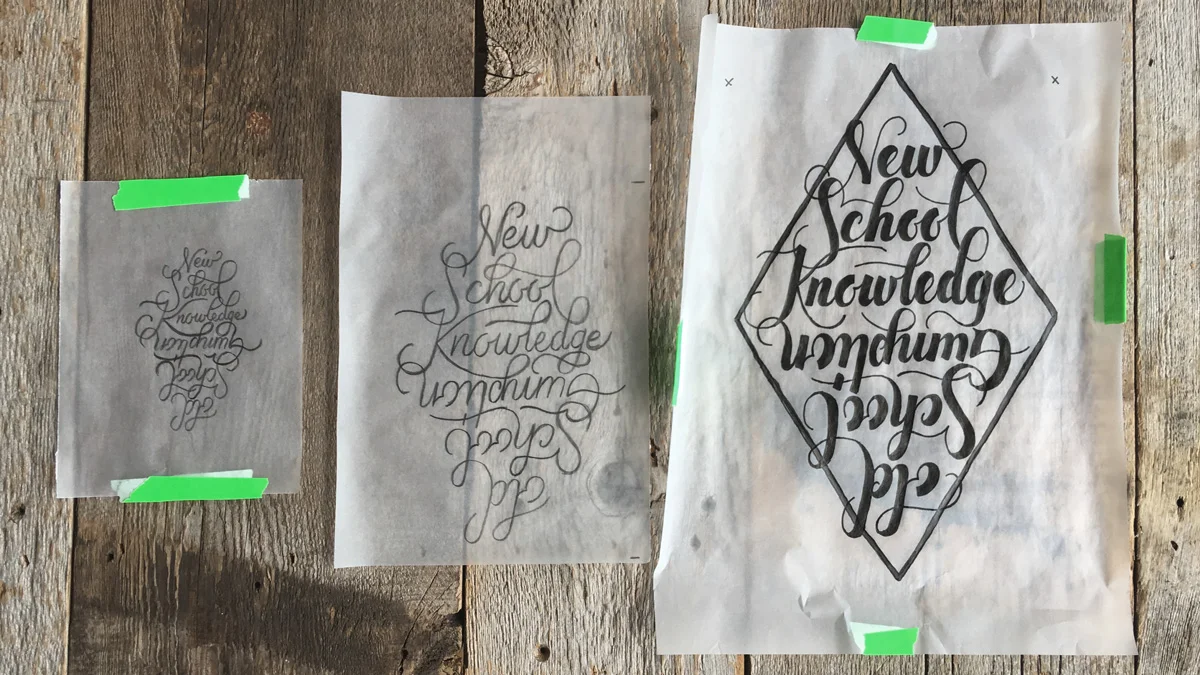 New
School
Knowledge
Old
School
Gumption
New
School
Knowledge
Old
School
Gumption
New
School
Knowledge
Old
School
Gumption